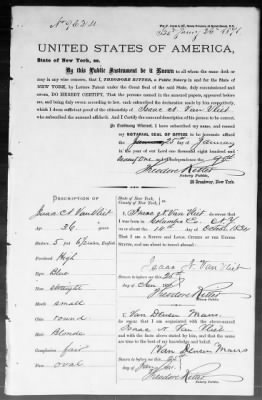 UNITED STATES OF AMERICA,
State of New York, ss.
By this Public Instrument be it Known
to all whom the same doth or
may in any wise concern, that I, THEODORE RITTER, a Public Notary in and for the State of
NEW YORK, by Letters Patent under the Great Seal of the said State, duly commissioned and
sworn, DO HEREBY CERTIFY, That the persons named in the annexed papers, appeared before
me, and being duly sworn according to law, each subscribed the declaration made by him respectively,
which I deem sufficient proof of the citizenship of Isaac N. Van Vliet
who subscribed the annexed affidavit. And I Certify the annexed description of his person to be correct.
In Testimony Whereof, I have hereunto subscribed my name, and caused my
NOTARIAL SEAL OF OFFICE to be hereunto affixed
the 25th day of January
in the year of our Lord one thousand eight hundred and
Seventy One and Independence
Theodore Ritter
Notary Public,
New York.
DESCRIPTION OF
Isaac N. Van Vliet
Age 36 years
Stature 5 feet 6 inches English
Forehead High
Eyes Blue
Nose straight
Mouth small
Chin round
Hair Blonde
Complexion fair
Face oval
State of New York,
County of New York,
I, Isaac N. Van Vliet
born in
on or about the 14th day of
THAT I AM A NATIVE AND LOYAL CITIZEN OF THE UNITED
STATES, and am about to travel abroad.
Isaac N. Van Vliet
Sworn to before me this 25th
day of Jany 1871
Theodore Ritter
Notary Public.
I, Van Deusen
that I am acquainted with the above-named
Isaac N. Van Vliet
and with the facts above stated by him, and that the same
are true to the best of my knowledge and belief.
Van Deusen
Sworn to before me, this 25th
day of Jany
Theodore Ritter
Notary Public.